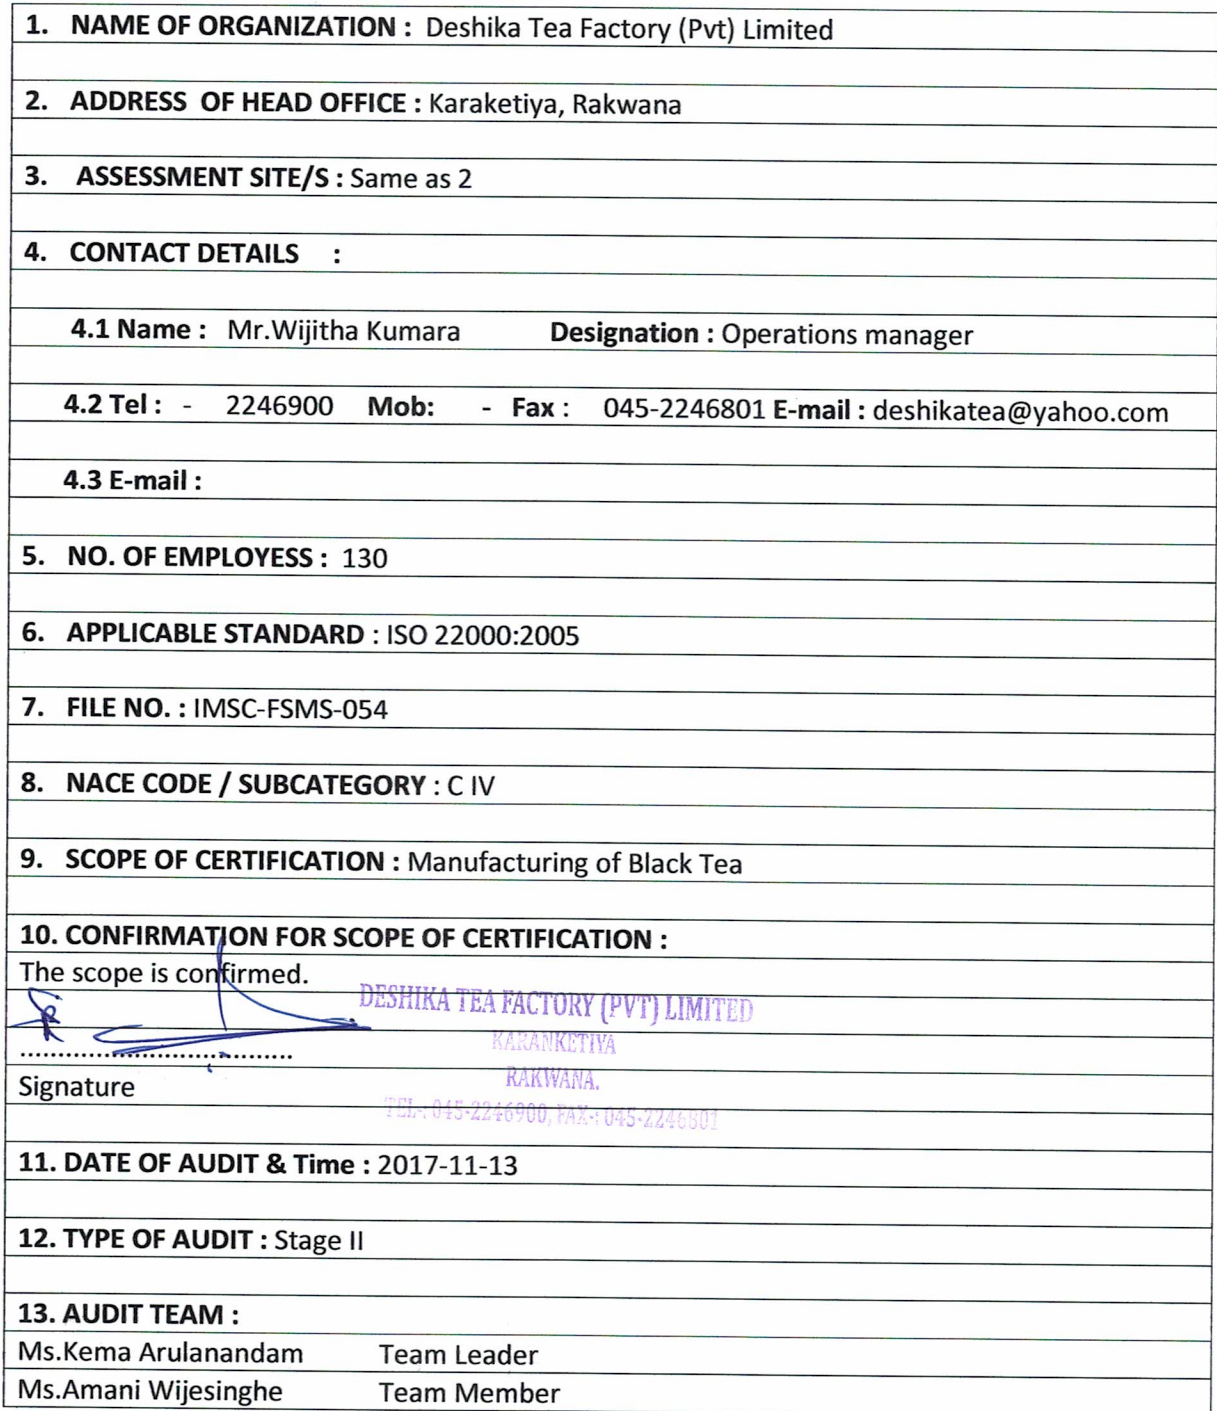 1. NAME OF ORGANIZATION : Deshika Tea Factory (Pvt) Limited
2. ADDRESS OF HEAD OFFICE : Karaketiya, Rakwana
3. ASSESSMENT SITE/S : Same as 2
4. CONTACT DETAILS :
4.1 Name : Mr.Wijitha Kumara Designation : Operations manager
4.2 Tel : - 2246900 Mob: - Fax : 045-2246801 E-mail : deshikatea@yahoo.com
4.3 E-mail :
5. NO. OF EMPLOYESS : 130
6. APPLICABLE STANDARD : ISO 22000:2005
7. FILE NO. : IMSC-FSMS-054
8. NACE CODE / SUBCATEGORY : C IV
9. SCOPE OF CERTIFICATION : Manufacturing of Black Tea
10. CONFIRMATION FOR SCOPE OF CERTIFICATION :
The scope is confirmed.
DESHIKA TEA FACTORY (PVT) LIMITED
KARANKETIYA
RAKWANA.
TEL-: 045-2246900, FAX-: 045-2246801
....................................
Signature
11. DATE OF AUDIT & Time : 2017-11-13
12. TYPE OF AUDIT : Stage II
13. AUDIT TEAM :
Ms.Kema Arulanandam Team Leader
Ms.Amani Wijesinghe Team Member